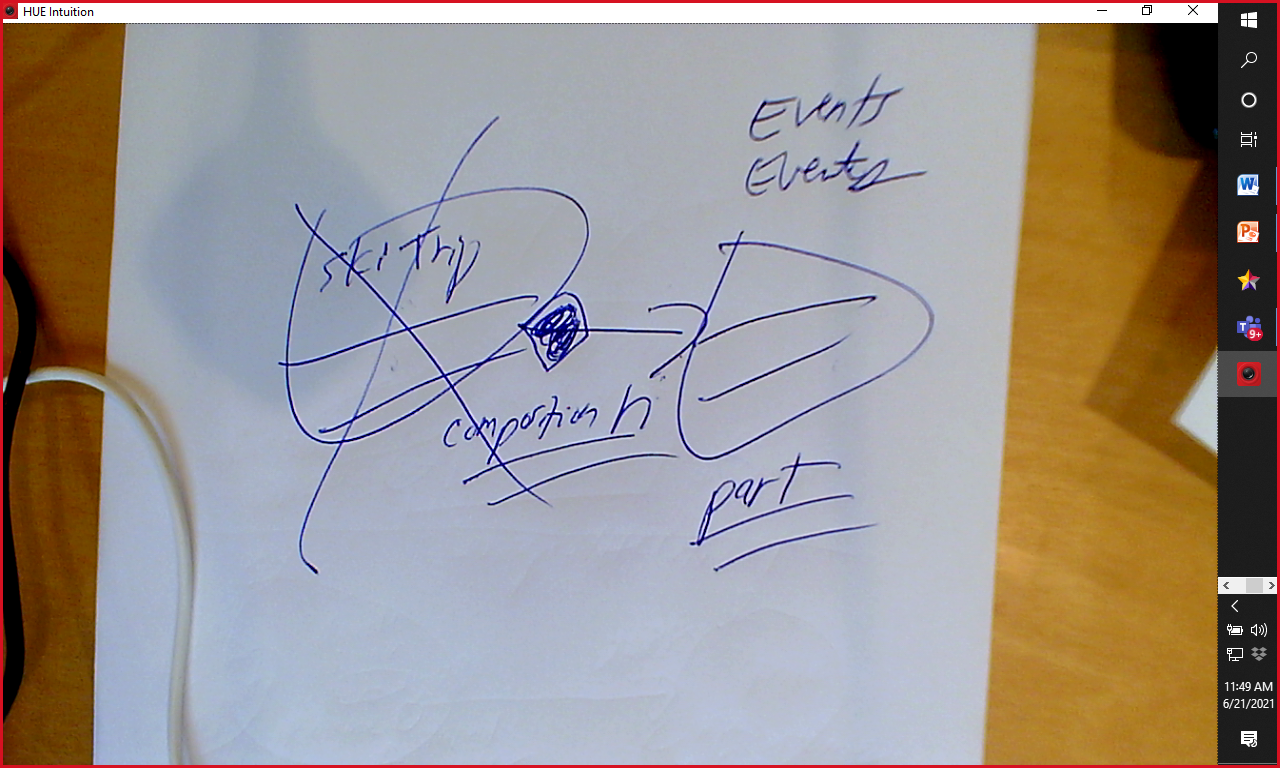 HUE Intuition
Events
Events
ski trip
composition
part
9+
11:49 AM
6/21/2021